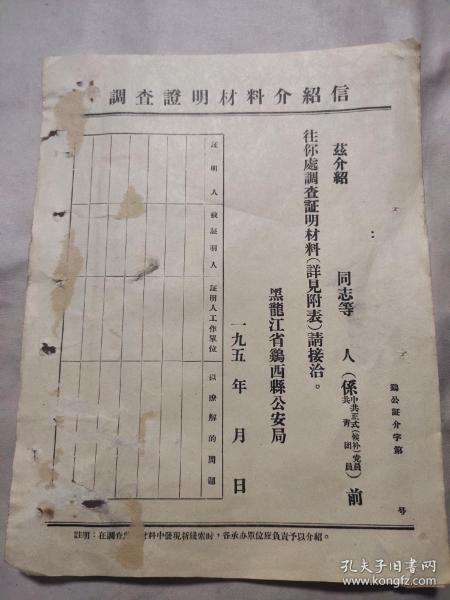 調查證明材料介紹信
鷄公証介字第　　号
茲介紹　　同志等　人（係中共正式（候补）党員 共青团員）前
往你處調查証明材料（詳見附表）請接洽。
黑龍江省鷄西縣公安局
一九五　年　月　日
証明人
被証明人
証明人工作單位
以瞭解的問題
註明：在調查 材料中發現新綫索时，各承办單位应負責予以介紹。
孔夫子旧书网